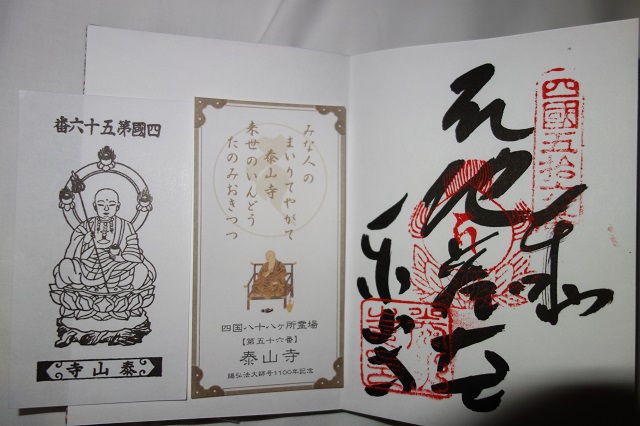 四國第五十六番
泰山寺
みな人の
まいりてやがて
泰山寺
来世のいんどう
たのみおきつつ
四国八十八ヶ所霊場
【第五十六番】
泰山寺
賜弘法大師号1100年記念
四國五十六
奉
地蔵大士
泰山寺